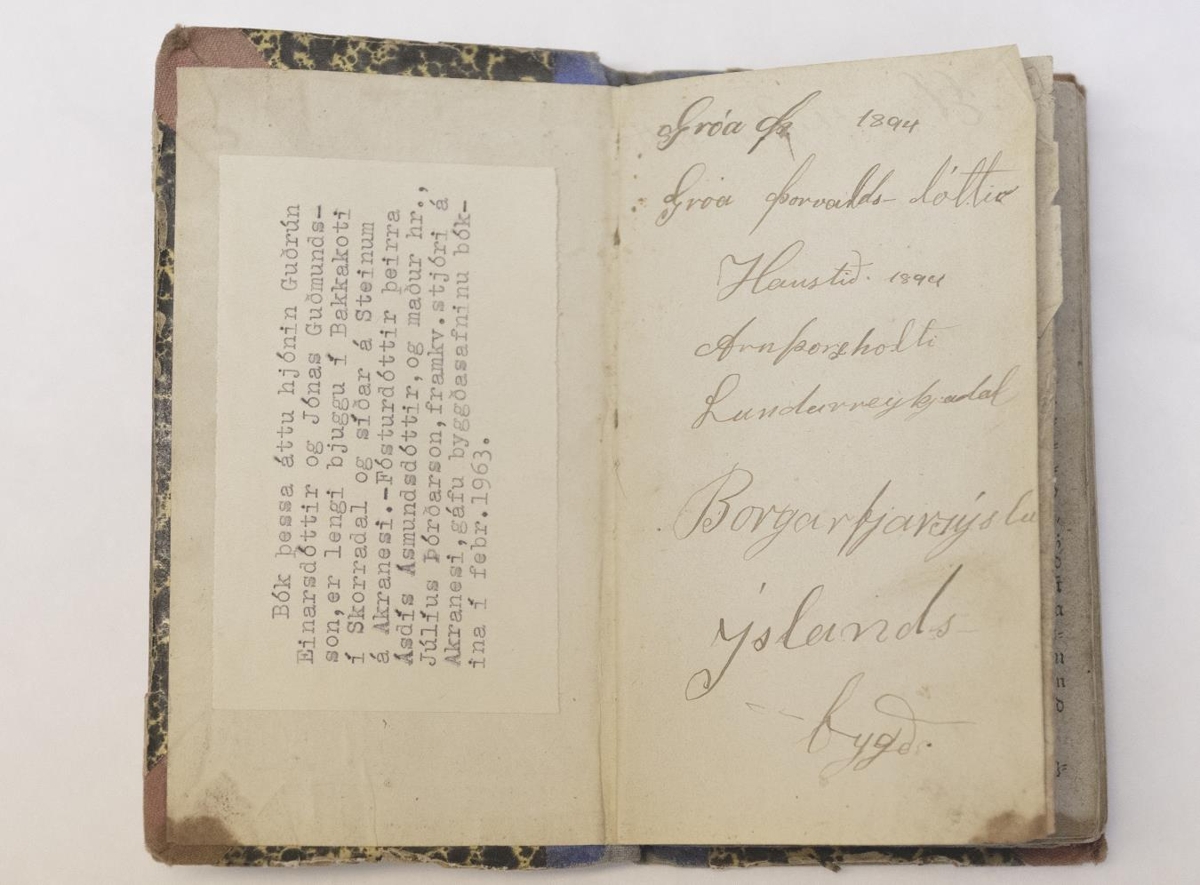 Bók þessa áttu hjónin Guðrún
Einarsdóttir og Jónas Guðmunds-
son,er lengi bjuggu í Bakkakoti
í Skorradal og síðar á Steinum
á Akranesi.-Fósturdóttir þeirra
Ásdís Ásmundsdóttir,og maður hr.,
Júlíus Þórðarson,framkv.stjóri á
Akranesi,gáfu byggðasafninu bók-
ina í febr.1963.
Gróa Þ 1894
Gróa Þorvalds- dóttir
Haustið. 1894
Arnþorsholti
Lundarreykjadal
Borgarfjarsýslu
Ýslands-
bygð.